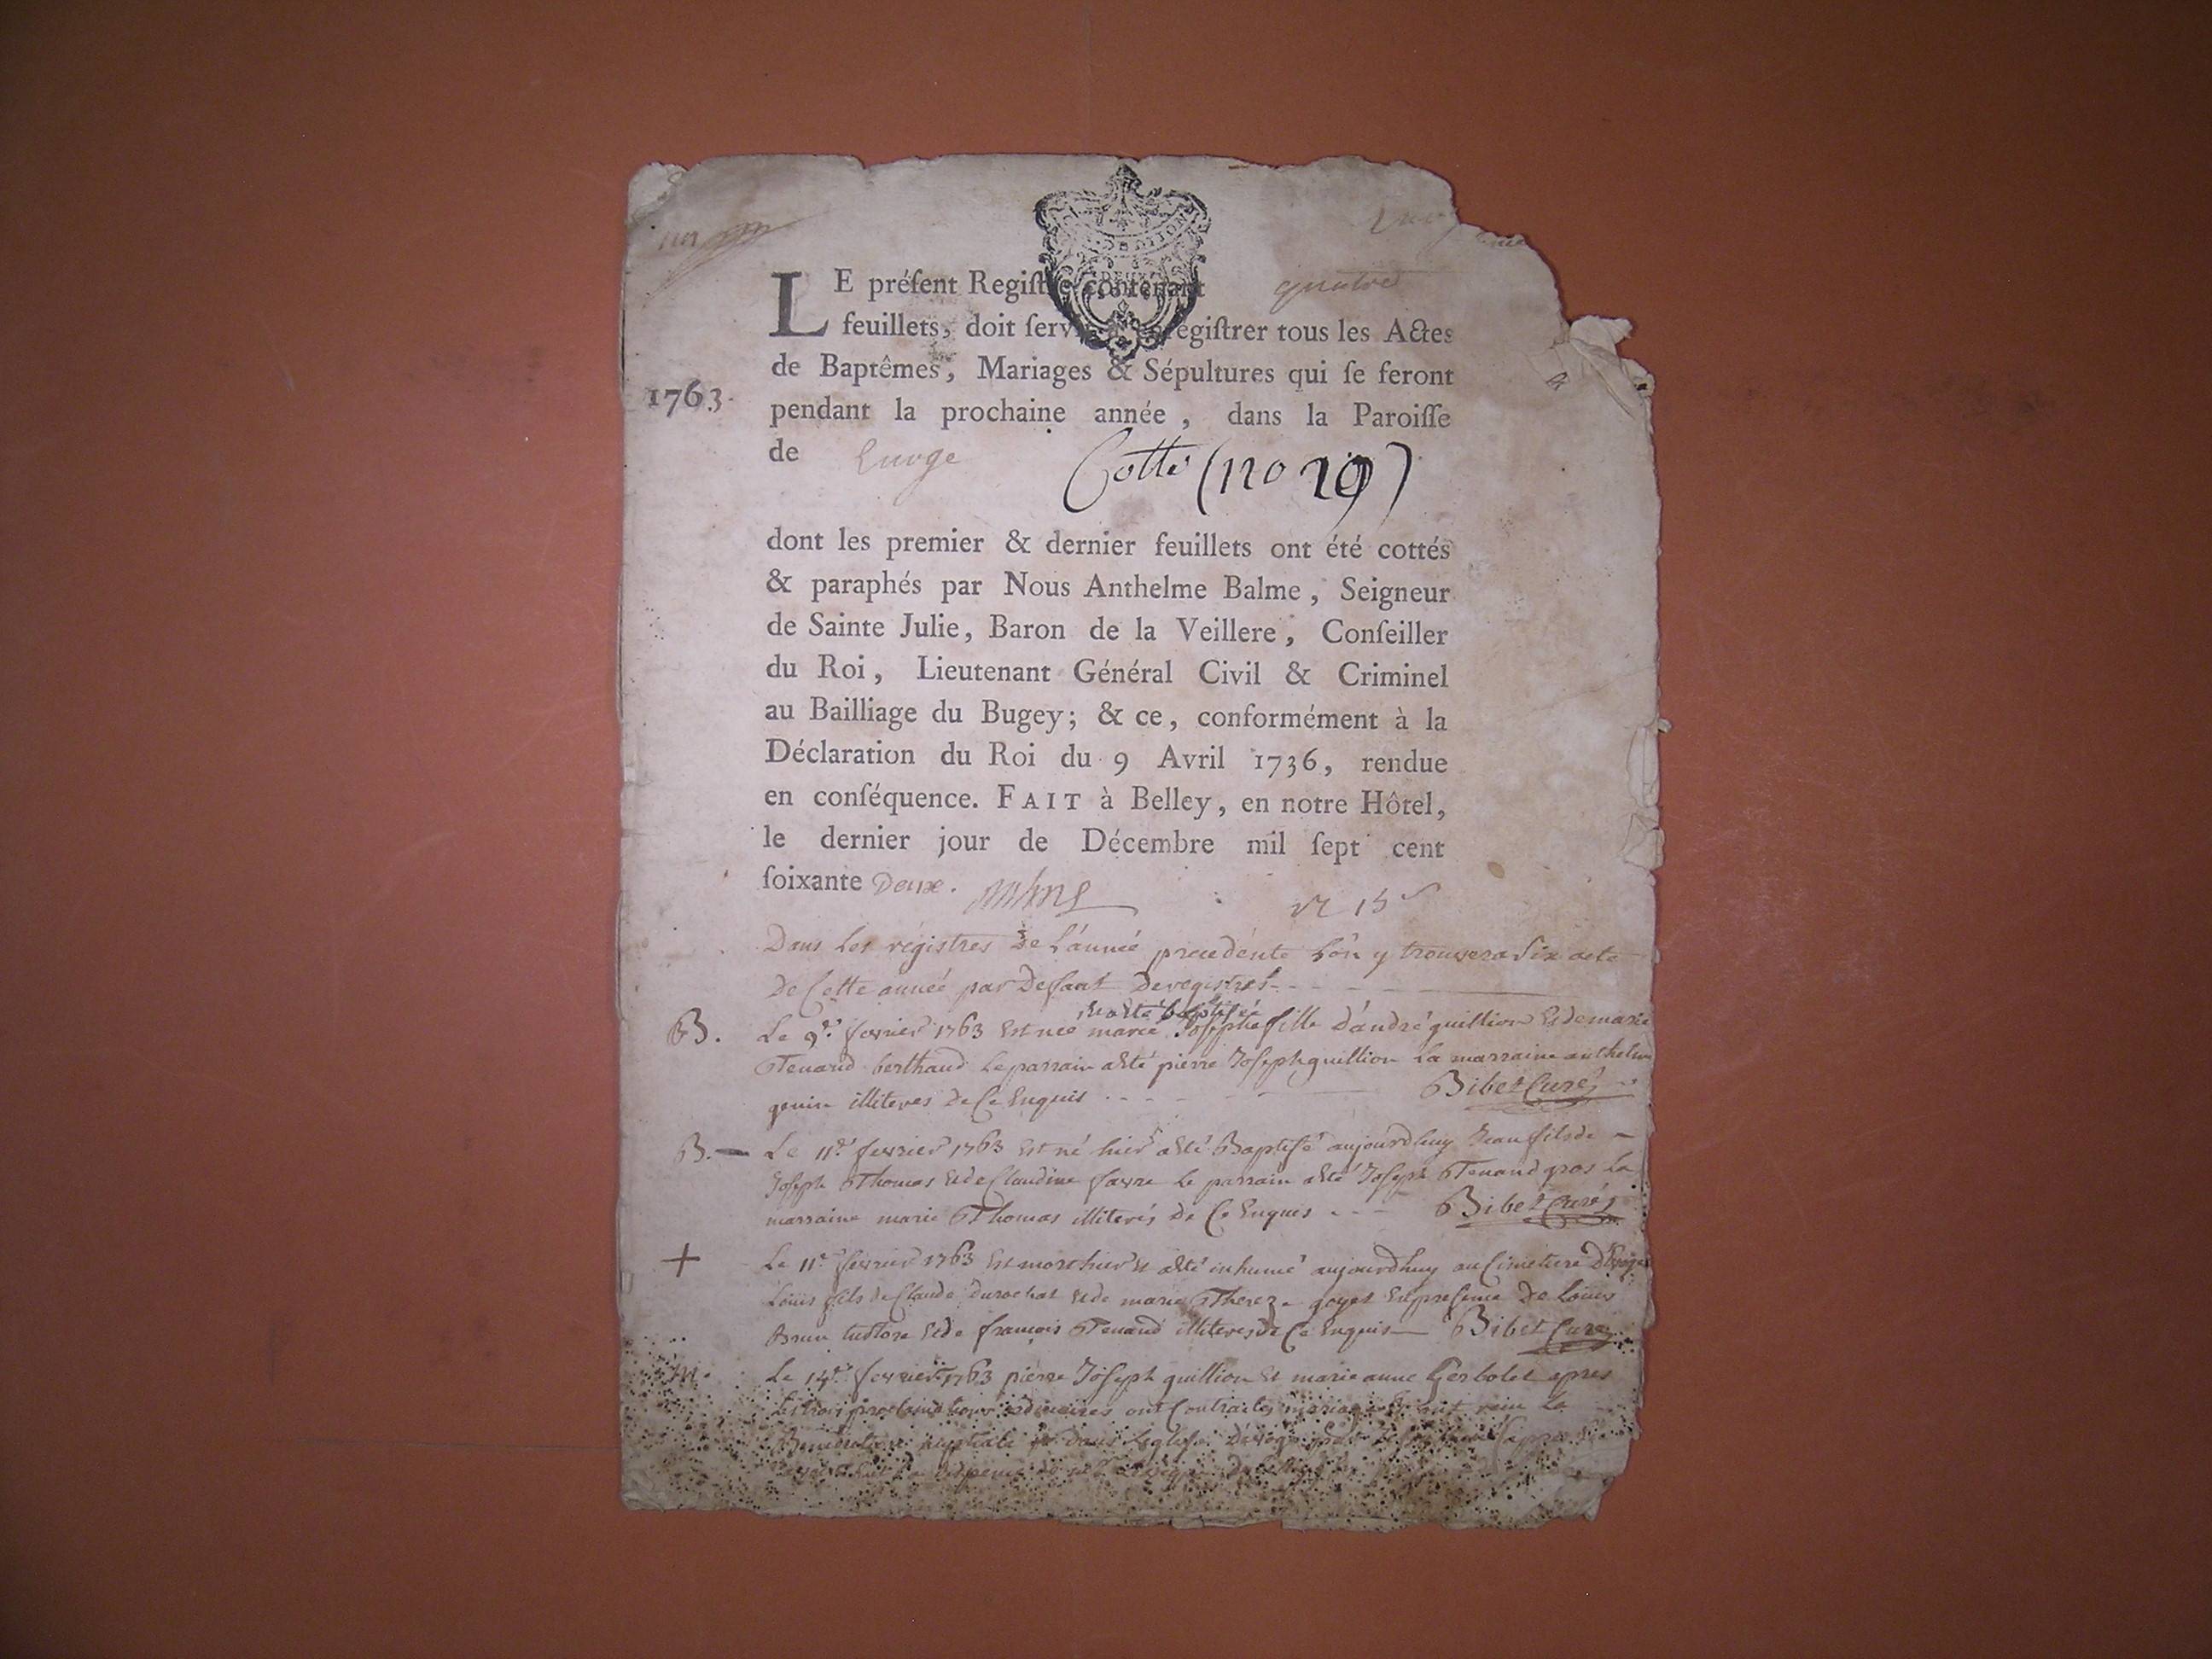 LE préſent Regiſtre contenant quatre
feuillets, doit ſervir à enregiſtrer tous les Actes
de Baptêmes, Mariages & Sépultures qui ſe feront
1763.
pendant la prochaine année, dans la Paroiſſe
de Evoge Cotte (no 19)
dont les premier & dernier feuillets ont été cottés
& paraphés par Nous Anthelme Balme, Seigneur
de Sainte Julie, Baron de la Veillere, Conſeiller
du Roi, Lieutenant Général Civil & Criminel
au Bailliage du Bugey; & ce, conformément à la
Déclaration du Roi du 9 Avril 1736, rendue
en conſéquence. FAIT à Belley, en notre Hôtel,
le dernier jour de Décembre mil ſept cent
ſoixante Deux.
Dans les régistres de l'année precedente l'on y trouvera six acte
de Cette année par Defaut De registres
et a été baptisée
B. Le 9e. fevrier 1763 est née marie Josephe fille d'andré guillion et de marie
Tenand berthaud le parrain a été pierre Joseph guillion la marraine anthelm
genin illiteres de Ce Enquis Bibet Curé
B. Le 11e fevrier 1763 est né hier a été Baptisé aujourdhuy Jean fils de
Joseph Thomas et de Claudine favre le parrain a été Joseph Tenand gros la
marraine marie Thomas illiterés de Ce Enquis Bibet Curé
+ Le 11e fevrier 1763 est mort hier et a été inhumé aujourdhuy au Cimetiere D'Evoges
Louis fils de Claude Durochat et de marie Thereze goyet en presence de Louis
Brun tuttore et de françois Tenand illiteres de Ce enquis Bibet Curé
M. Le 14e. fevrier 1763 pierre Joseph guillion et marie anne Gerbolet apres
les trois proclamations ordinaires ont Contractés mariage et ont recu la
Benediction nuptiale dans l'eglise